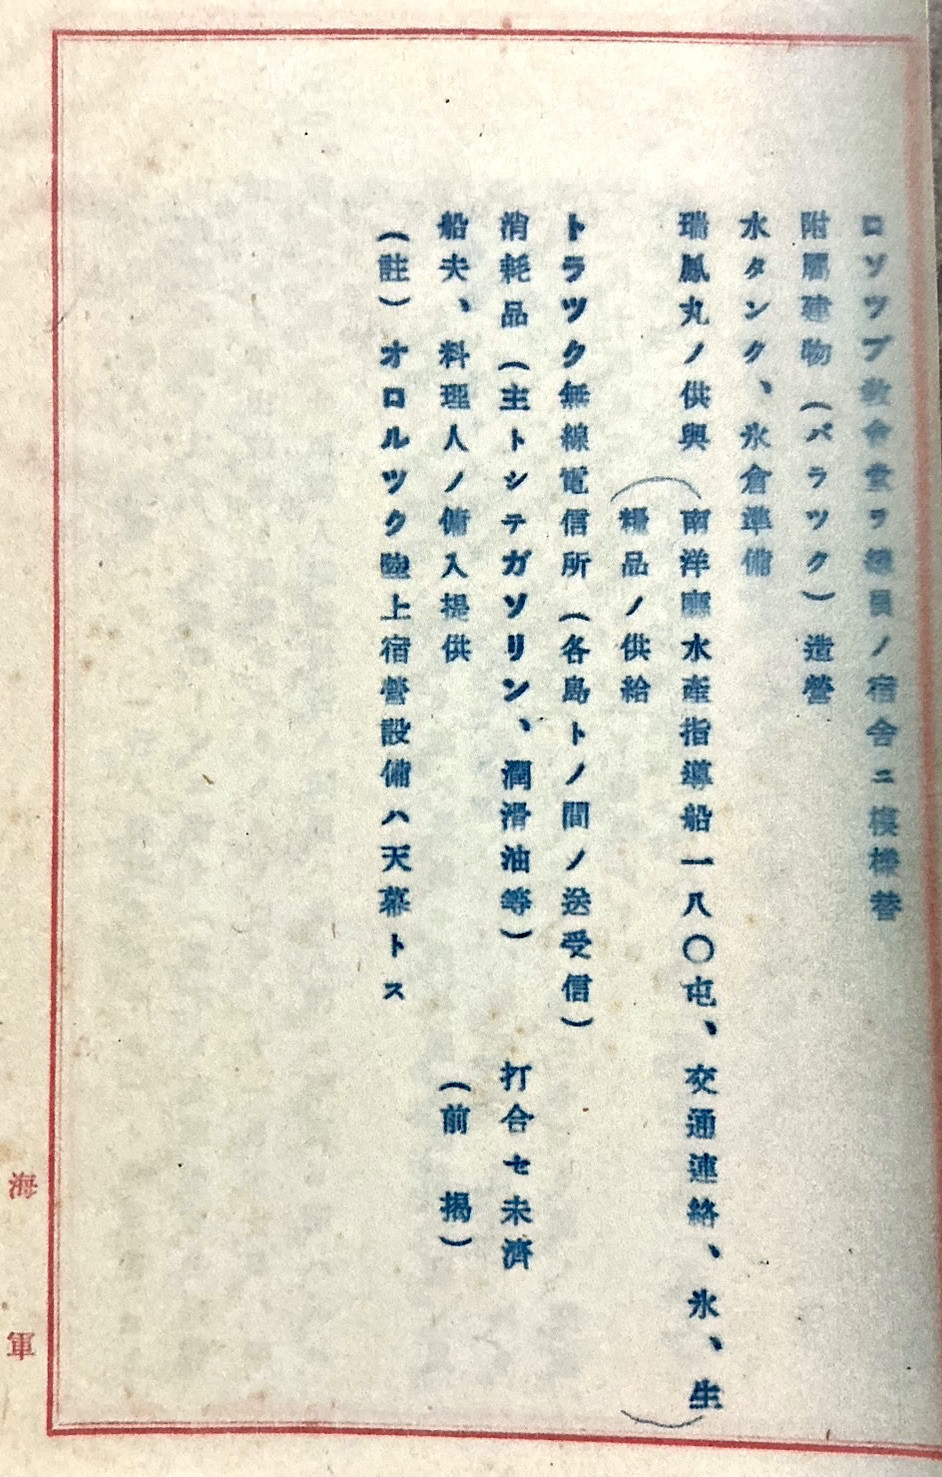 ロソツプ教會堂ヲ總員ノ宿舎ニ模樣替
附屬建物（バラツク）造營
水タンク、氷倉準備
瑞鳳丸ノ供與（南洋廳水產指導船一八〇屯、交通連絡、氷、生
糧品ノ供給）
トラツク無線電信所（各島トノ間ノ送受信）
消耗品（主トシテガソリン、潤滑油等）　打合セ未濟
船夫、料理人ノ傭入提供　（前　揭）
（註）オロルツク陸上宿營設備ハ天幕トス
海軍